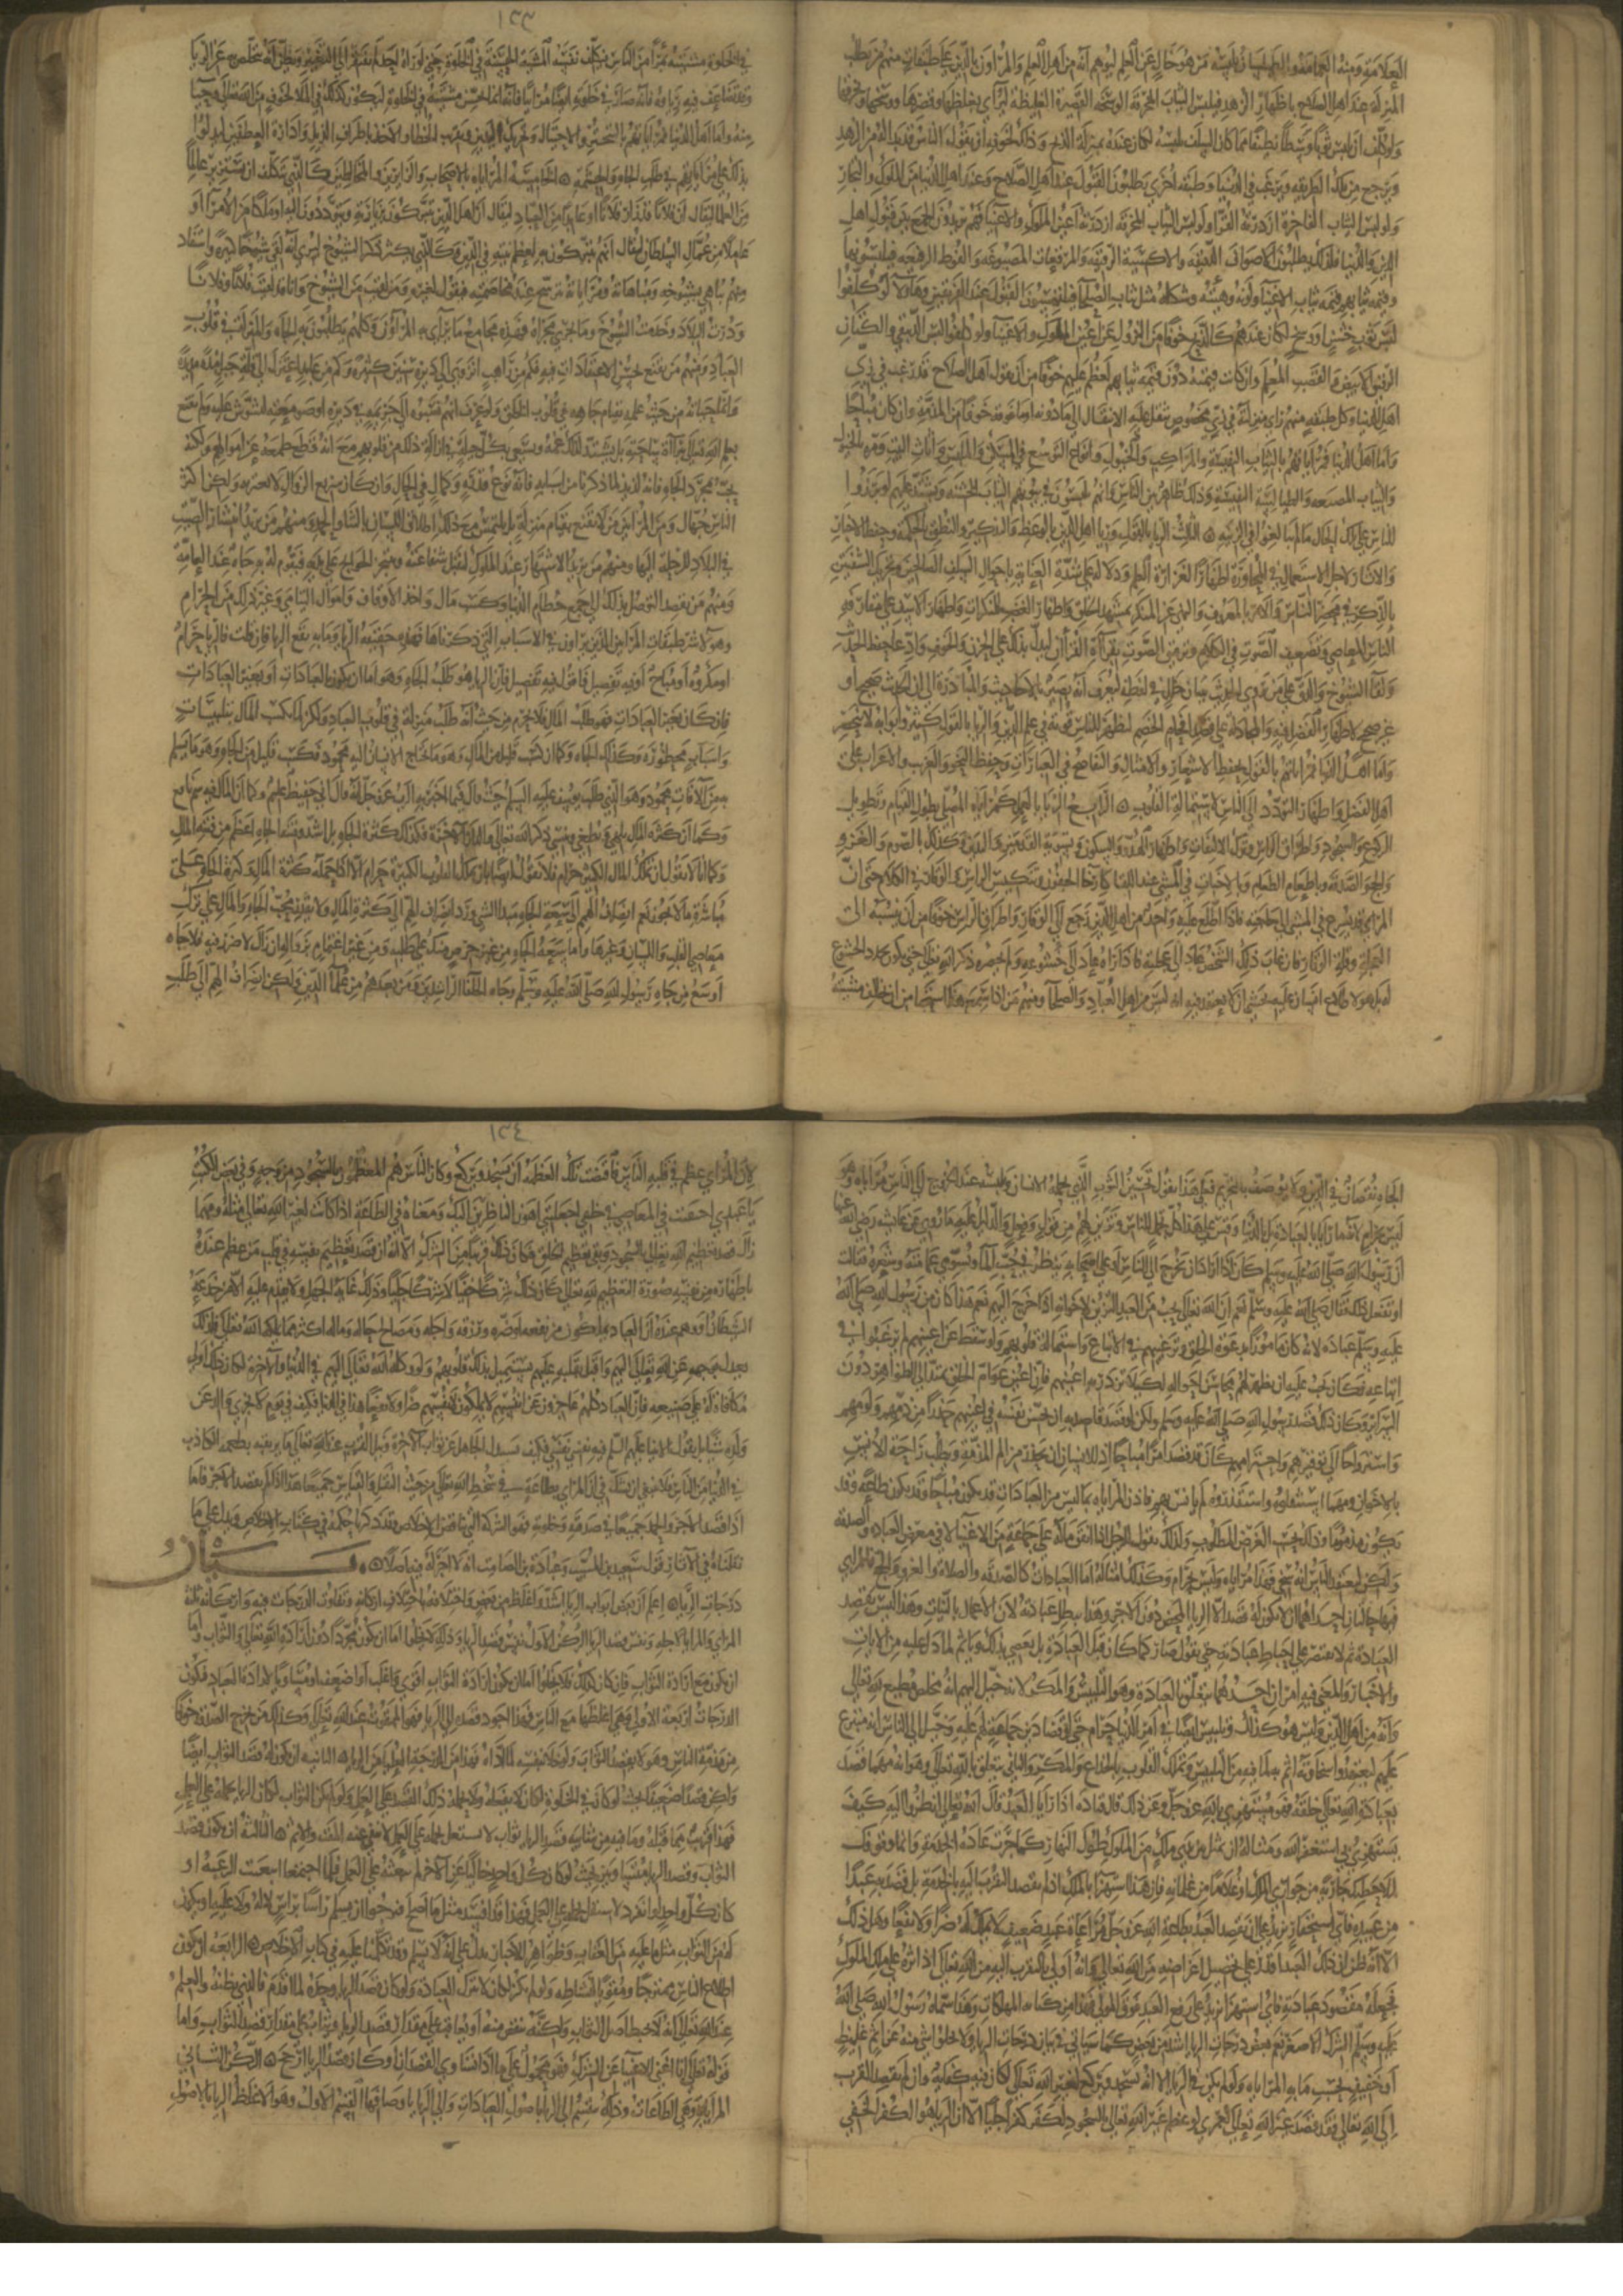 العلامة ومنه الدراعة والطيلسان يلبسه من هو خال عن العلم ليوهم انه من اهل العلم والمراؤن بالزي على طبقات منهم من يطلب
المنزلة عند اهل الصلاح باظهار الزهد فيلبس الثياب المخرقة الوسخة القصيرة الغليظة ليرائي بغلظها وقصرها ووسخها وتخرقها
ولو كلف ان يلبس ثوبا وسطا نظيفا مما كان السلف يلبسه لكان عنده بمنزلة الذبح وذلك لخوفه ان يقول الناس قد بدا له من الزهد
ورجع من تلك الطريقة ورغب في الدنيا وطبقة اخرى يطلبون القبول عند اهل الصلاح وعند اهل الدنيا من الملوك والتجار
ولو لبسوا الثياب الفاخرة ازدرته القراء ولو لبس الثياب المخرقة ازدرته اعين الملوك والاغنياء فهم يريدون الجمع بين قبول اهل
الدين والدنيا فلذلك يطلبون الاصواف الدقيقة والاكسية الرقيقة والمرقعات المصبوغة والفوط الرفيعة فيلبسونها
وقيمة ثيابهم قيمة ثياب الاغنياء ولونه وهيئته وشكله مثل ثياب الصلحاء فيلتمسون القبول عند الفريقين وهاولا لو كلفوا
لبس ثوب خشن او وسخ لكان عندهم كالذبح خوفا من النزول عن اعين الملوك والاغنياء ولو كلفوا لبس الدبيقي والكتان
الرقيق الابيض والقصب المعلم وان كانت قيمته دون قيمة ثيابهم لعظم عليهم خوفا من ان يقول اهل الصلاح قد رغب في زي
اهل الدنيا وكل طبقة منهم راى منزلته في زي مخصوص فيثقل عليه الانتقال الى ما دونه او ما فوقه خوفا من المذمة وان كان مباحا
واما اهل الدنيا فمراياتهم بالثياب النفيسة والمراكب والخيول وانواع التوسع في الملبس والمسكن واثاث البيت وفره الخيول
والثياب المصبغة والطيالسة النفيسة وذلك ظاهر بين الناس فانهم يلبسون في بيوتهم الثياب الخشنة ويشتد عليهم لو برزوا
للناس على تلك الحال ما لم يبالغوا في الزينة الثالث الريا بالقول وريا اهل الدين بالوعظ والتذكير والنطق بالحكمة وحفظ الاخبار
والاثار لاجل الاستعمال في المحاورة اظهارا لغزارة العلم ودلالة على شدة العناية باحوال السلف الصالحين وتحريك الشفتين
بالذكر في محضر الناس والامر بالمعروف والنهي عن المنكر بمشهد الخلق واظهار الغضب للمنكرات واظهار الاسف على مقارفة
الناس للمعاصي وتضعيف الصوت في الكلام وترقيق الصوت بقراة القران ليدل بذلك على الحزن والخوف وادعا حفظ الحديث
ولقا الشيوخ والدق على من يروي الحديث ببيان خلل في لفظه ليعرف انه بصير بالاحاديث والمبادرة الى ان الحديث صحيح او
غير صحيح لاظهار الفضل فيه والمجادلة على قصد افحام الخصم ليظهر للناس قوته في علم الدين والريا بالقول كثير وانواعه لا تنحصر
واما اهل الدنيا فمراياتهم بالقول بحفظ الاشعار والامثال والتفاصح في العبارات وحفظ النحو والغريب والاغراب على
اهل الفضل واظهار التودد الى الناس لاستمالة القلوب الرابع الريا بالعمل كمراياة المصلي بطول القيام وتطويل
الركوع والسجود واطراق الراس وترك الالتفات واظهار الهدو والسكون وتسوية القدمين واليدين وكذلك بالصوم والغزو
والحج والصدقة وباطعام الطعام وبالاخبات في المشي عند اللقا كارخا الجفون وتنكيس الراس والوقار في الكلام حتى ان
المرائي قد يسرع في المشي الى حاجته فاذا اطلع عليه واحد من اهل الدين رجع الى الوقار واطراق الراس خوفا من ان ينسبه الى
العجلة وقلة الوقار فان غاب ذلك الشخص عاد الى عجلته فاذا راه عاد الى خشوعه ولم يحضره ذكر الله تعالى حتى يكون تجدد الخشوع
له بل هو لاطلاع انسان عليه يخشى ان لا يعتقد فيه انه ليس من اهل العباد والصلحا ومنهم من اذا سمع هذا استحيا من ان يخالف مشيته
١٣٣
في الخلوة مشيته بمرأى من الناس فيكلف نفسه المشية الحسنة في الخلوة حتى لو راه احد لم يفتقر الى التغيير ويظن انه يتخلص به عن الريا
وقد تضاعف فيه رياوه فانه صار في خلوته ايضا مرائيا فانه انما يحسن مشيته في الخلوة ليكون كذلك في الملا لا لخوف من الله تعالى وحيا
منه واما اهل الدنيا فمراياتهم بالتبختر والاختيال وتحريك اليدين وتقريب الخطا والاخذ باطراف الذيل وادارة العطفين ليدلوا
بذلك على الجاه والحشمة الخامس المراياة بالاصحاب والزايرين والمخالطين كالذي يتكلف ان يستزير عالما
من العلما ليقال ان فلانا قد زار فلانا او عابدا من العباد ليقال ان اهل الدين يتبركون بزيارته ويترددون اليه او ملكا من الامرا او
عاملا من عمال السلطان ليقال انهم يتبركون به لعظم رتبته في الدين وكالذي يكثر ذكر الشيوخ ليرى انه لقي شيوخا كثيرة واستفاد
منهم فيباهي بشيوخه ومباهاته ومراياته تترشح منه عند مخاصمته فيقول لغيره ومن لقيت من الشيوخ وانا قد لقيت فلانا وفلانا
ودرت البلاد وخدمت الشيوخ وما يجري مجراه فهذه مجامع ما يرائي به المراؤن وكلهم يطلبون به الجاه والمنزلة في قلوب
العباد ومنهم من يقنع بحسن الاعتقادات فيه فكم من راهب انزوى الى ديره سنين كثيرة وكم من عابد اعتزل الى قلة جبل مدة مديدة
وانما حياته من حيث علمه بقيام جاهه في قلوب الخلق ولو عرف انهم نسبوه الى جريمة في ديره او صومعته لتشوش عليه ولم يقنع
بعلم الله ببراءة ساحته بل يشتد لذلك غمه ويسعى بكل حيلة في ازالة ذلك من قلوبهم مع انه قطع طمعه عن اموالهم ولكنه
يحب مجرد الجاه فانه لذيذ كما ذكرنا من اسبابه فانه نوع قدرة وكمال في الحال وان كان سريع الزوال لا يغتر به ولكن اكثر
الناس جهال ومن المرائين من لا يقنع بقيام منزلته بل يلتمس مع ذلك اطلاق اللسان بالثنا والحمد ومنهم من يريد انتشار الصيت
في البلاد لتكثر الرحلة اليه ومنهم من يريد الاشتهار عند الملوك لتقبل شفاعته وتنجز الحوايج على يده فيقوم له بذلك جاه عند العامة
ومنهم من يقصد التوصل بذلك الى جمع حطام الدنيا وكسب مال واخذ الاوقاف واموال اليتامى وغير ذلك من الحرام
وهولا شر طبقات المرائين الذين يراون في الاسباب التي ذكرناها فهذه حقيقة الريا وما به يقع الريا فان قلت فالريا حرام
او مكروه او مباح او فيه تفصيل فاقول فيه تفصيل فان الريا هو طلب الجاه وهو اما ان يكون بالعبادات او بغير العبادات
فان كان بغير العبادات فهو كطلب المال فلا يحرم من حيث انه طلب منزلة في قلوب العباد ولكن كما يمكن كسب المال بتلبيسات
واسباب محظورة فكذلك الجاه وكما ان كسب قليل من المال وهو ما يحتاج الانسان اليه محمود فكسب قليل من الجاه وهو ما يسلم
به من الافات محمود وهو الذي طلبه يوسف عليه السلم حيث قال فيما اخبر به الرب عز وجل انه قال اني حفيظ عليم وكما ان المال فيه سم ناقع
وكما ان كثرة المال تلهي وتطغي وتنسي ذكر الله تعالى والدار الاخرة فكذلك كثرة الجاه بل اشد وفتنة الجاه اعظم من فتنة المال
وكما انا لا نقول تملك المال الكثير حرام فلا نقول ايضا ان تملك القلوب الكثيرة حرام الا اذا حملته كثرة المال وكثرة الجاه على
مباشرة ما لا يجوز نعم انصراف الهم الى سعة الجاه مبدا الشرور كانصراف الهم الى كثرة المال ولا يقدر محب الجاه والمال على ترك
معاصي القلب واللسان وغيرها واما سعة الجاه من غير حرص منك على طلبه ومن غير اغتمام بزواله ان زال فلا ضرر فيه فلا جاه
اوسع من جاه رسول الله صلى الله عليه وسلم وجاه الخلفا الراشدين ومن بعدهم من علما الدين ولكن انصراف الهم الى طلب
الجاه نقصان في الدين ولا يوصف بالتحريم فعلى هذا نقول تحسين الثوب الذي يلبسه الانسان عند الخروج الى الناس مراياة وهو
ليس بحرام لانه ليس ريا بالعبادة بل بالدنيا وقس على هذا كل تجمل للناس وتزين لهم من قول وفعل والدليل عليه ما روي عن عايشة رضي الله عنها
ان رسول الله صلى الله عليه وسلم كان اذا اراد ان يخرج الى الناس او على صحابه ينظر في حب الما ويسوي عمامته وشعره فقالت
او تفعل ذلك فقال صلى الله عليه وسلم نعم ان الله تعالى يحب من العبد التزين لاخوانه اذا خرج اليهم نعم هذا كان من رسول الله صلى الله
عليه وسلم عبادة لانه كان مامورا بدعوة الخلق وترغيبهم في الاتباع واستمالة قلوبهم ولو سقط عن اعينهم لم يرغبوا في
اتباعه فكان يجب عليه ان يظهر لهم محاسن احواله لكيلا تزدريه اعينهم فان اعين عوام الخلق تمتد الى الظواهر دون
السراير وكان ذلك قصد رسول الله صلى الله عليه وسلم ولكن لو قصد قاصد به ان يحسن نفسه في اعينهم حذرا من ذمهم ولومهم
واسترواحا الى توقيرهم واحترامهم كان قد قصد امرا مباحا اذ للانسان ان يحذر من الم المذمة ويطلب راحة الانس
بالاخوان ومهما استثقلوه واستقذروه لم يانس بهم فاذن المراياة بما ليس من العبادات قد يكون مباحا وقد يكون طاعة وقد
يكون مذموما وذلك بحسب الغرض المطلوب ولذلك نقول الرجل اذا انفق ماله على جماعة من الاغنيا لا في معرض العبادة والصدقة
ولكن ليعتقد الناس انه سخي فهذا مراياة وليس بحرام وكذلك امثاله اما العبادات كالصدقة والصلاة والغزو والحج فالمرائي
فيها حالتان احداهما ان لا يكون له قصد الا الريا المحض دون الاجر وهذا يبطل عبادته لان الاعمال بالنيات وهذا ليس يقصد
العبادة ثم لا يقتصر على احباط عبادته حتى نقول صار كما كان قبل العبادة بل يعصي بذلك وياثم لما دل عليه من الايات
والاخبار والمعنى فيه امران احدهما يتعلق بالعبادة وهو التلبيس والمكر لانه خيل اليهم انه مخلص مطيع لله تعالى
وانه من اهل الدين وليس هو كذلك وتلبيس ايضا في امر الدنيا حرام حتى لو قضا دين جماعة وخيل الى الناس انه متبرع
عليهم ليعتقدوا سخاوته اثم به لما فيه من التلبيس وتملك القلوب بالخداع والمكر والثاني يتعلق بالله تعالى وهو انه مهما قصد
بعبادة الله تعالى خلقه فهو مستهزئ بالله عز وجل وعن ذلك قال قتادة اذا رايا العبد قال الله تعالى انظروا اليه كيف
يستهزئ بي استغفر الله ومثاله ان يمثل بين يدي ملك من الملوك طول النهار كما جرت عادة الخدمة وانما وقوفه
لملاحظة جارية من جواري الملك او غلاما من غلمانه فان هذا استهزا بالملك اذ لم يقصد التقرب اليه بالخدمة بل قصد به عبدا
من عبيده فاي استحقار يزيد على ان يقصد العبد بطاعة الله عز وجل مراعاة عبد ضعيف لا يملك له ضرا ولا نفعا وهل ذلك
الا لانه ظن ان ذلك العبد اقدر على تحصيل اغراضه من الله تعالى وانه اولى بالتقرب اليه من الله تعالى اذ اثره على ملك الملوك
فجعله مقصود عبادته فاي استهزا يزيد على رفع العبد فوق المولى فهذا من كباير المهلكات ولهذا سماه رسول الله صلى الله
عليه وسلم الشرك الاصغر نعم بعض درجات الريا اشد من بعض كما سياتي في بيان درجات الريا ولا يخلو شي منه عن اثم غليظ
او خفيف بحسب ما به المراياة ولو لم يكن في الريا الا انه يسجد ويركع لغير الله تعالى لكان فيه كفاية وان لم يقصد التقرب
الى الله تعالى فقد قصد غير الله تعالى لعمري لو عظم غير الله تعالى بالسجود لكفر كفرا جليا الا ان الريا هو الكفر الخفي
١٣٤
لان المرائي عظم في قلبه الناس فاقتضت تلك العظمة ان يسجد ويركع وكان الناس هم المعظمون بالسجود من وجه وفي بعض الكتب
يا عبدي احتفيت في المعاصي من خلقي اجعلتني اهون الناظرين اليك ومعناه في الطاعة اذا كانت لغير الله تعالى مثله ومهما
زال قصد تعظيم الله تعالى بالسجود وبقي تعظيم الخلق فكان ذلك قريبا من الشرك الا انه ان قصد تعظيم نفسه في قلب من عظم عنده
باظهاره من نفسه صورة التعظيم لله تعالى كان ذلك شركا خفيا لا شركا جليا وذلك غاية الجهل ولا يقدم عليه الا من خدعه
الشيطان واوهم عنده ان العباد يملكون من نفعه وضره ورزقه واجله ومصالح حاله وماله اكثر مما يملكه الله تعالى فلذلك
عدل بوجهه عن الله تعالى اليهم واقبل بقلبه عليهم يستميل بذلك قلوبهم ولو وكله الله تعالى اليهم في الدنيا والاخرة لكان ذلك اقل
مكافاة له على صنيعه فان العباد كلهم عاجزون عن انفسهم لا يملكون لانفسهم ضرا ولا نفعا هذا في الدنيا فكيف في يوم لا يجزي والد عن
ولده شيا بل يقول الانبيا عليهم السلم فيه نفسي نفسي فكيف يستبدل الجاهل عن ثواب الاخرة ونيل القرب عند الله تعالى ما يرتقبه بطمعه الكاذب
في الدنيا من الناس فلا ينبغي ان يشك في ان المرائي بطاعة الله في سخط الله تعالى من حيث النقل والقياس جميعا هذا اذا لم يقصد الاجر فاما
اذا قصد الاجر والحمد جميعا في صدقته وصلاته فهو الشرك الذي يناقض الاخلاص وقد ذكرنا حكمه في كتاب الاخلاص ويدل على ما
نقلناه في الاثار قول سعيد بن المسيب وعبادة بن الصامت انه لا اجر له فيه اصلا بيان
درجات الريا اعلم ان بعض ابواب الريا اشد واغلظ من بعض واختلافه باختلاف اركانه وتفاوت الدرجات فيه واركانه ثلثة
المرائى به والمرائى لاجله ونفس قصد الريا الركن الاول نفس قصد الريا وذلك لا يخلو اما ان يكون مجردا دون ارادة الله تعالى والثواب واما
ان يكون مع ارادة الثواب فان كان كذلك فلا يخلو اما ان يكون ارادة الثواب اقوى واغلب او اضعف او مساويا لارادة العباد فتكون
الدرجات اربعة الاولى وهي اغلظها مع الناس فهذا المجرد قصده الى الريا فهو الممقوت عند الله تعالى وكذلك من يخرج الصدقة خوفا
من مذمة الناس وهو لا يقصد الثواب ولو خلا بنفسه لما اداه فهذا من الدرجة العليا من الريا الثانية ان يكون له قصد الثواب ايضا
ولكن قصدا ضعيفا بحيث لو كان في الخلوة لكان لا يفعله ولا يحمله ذلك القصد على العمل ولو لم يكن الثواب لكان الريا يحمله على العمل
فهذا قريب مما قبله وما فيه من شايبة قصد الريا ثواب لا يستقل بحمله على العمل لا ينفي عنه المقت والاثم الثالثة ان يكون قصد
الثواب وقصد الريا متساويين بحيث لو كان كل واحد خاليا عن الاخر لم يبعثه على العمل فلما اجتمعا انبعثت الرغبة او
كان كل واحد لو انفرد لا يستقل بحمله على العمل فهذا قد افسد مثل ما اصلح فنرجوا ان يسلم راسا براس لا له ولا عليه او يكون
له من الثواب مثل ما عليه من العقاب وظواهر الاخبار تدل على انه لا يسلم وقد تكلمنا عليه في كتاب الاخلاص الرابعة ان يكون
اطلاع الناس مرجحا ومقويا لنشاطه ولو لم يكن لكان لا يترك العبادة ولو كان قصد الريا وحده لما اقدم فالذي نظنه والعلم
عند الله تعالى انه لا يحبط اصل الثواب ولكنه ينقص منه او يعاقب على مقدار قصد الريا ويثاب على مقدار قصد الثواب واما
قوله تعالى انا اغنى الاغنيا عن الشرك فهو محمول على ما اذا تساوى القصدان او كان قصد الريا ارجح الركن الثاني
المرائى به وهي الطاعات وذلك ينقسم الى الريا باصول العبادات والى الريا باوصافها القسم الاول وهو الاغلظ الريا بالاصول